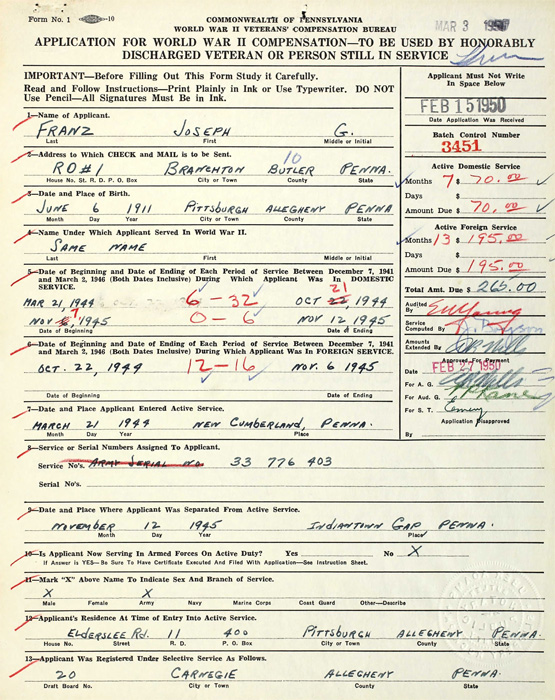 Form No. 1 —10
COMMONWEALTH OF PENNSYLVANIA
WORLD WAR II VETERANS' COMPENSATION BUREAU
MAR 3 1950
APPLICATION FOR WORLD WAR II COMPENSATION—TO BE USED BY HONORABLY
DISCHARGED VETERAN OR PERSON STILL IN SERVICE
IMPORTANT—Before Filling Out This Form Study it Carefully.
Read and Follow Instructions—Print Plainly in Ink or Use Typewriter. DO NOT
Use Pencil—All Signatures Must be in Ink.
Applicant Must Not Write
In Space Below
FEB 15 1950
Date Application Was Received
Batch Control Number
3451
1—Name of Applicant.
FRANZ JOSEPH G.
Last First Middle or Initial
2—Address to Which CHECK and MAIL is to be Sent.
10
RD#1 BRANCHTON BUTLER PENNA.
House No. St. R. D. P. O. Box City or Town County State
Active Domestic Service
Months 7 $ 70.00
Days $
Amount Due $ 70.00
3—Date and Place of Birth.
JUNE 6 1911 PITTSBURGH ALLEGHENY PENNA
Month Day Year City or Town County State
4—Name Under Which Applicant Served In World War II.
SAME NAME
Last First Middle or Initial
Active Foreign Service
Months 13 $ 195.00
Days $
Amount Due $ 195.00
Total Amt. Due $ 265.00
5—Date of Beginning and Date of Ending of Each Period of Service Between December 7, 1941
and March 2, 1946 (Both Dates Inclusive) During Which Applicant Was In DOMESTIC
SERVICE.
21
MAR 21, 1944 6 – 32 OCT 22 1944
7
NOV 6, 1945 0 – 6 NOV 12 1945
Date of Beginning Date of Ending
Audited By
Service Computed By
Amounts Extended By
6—Date of Beginning and Date of Ending of Each Period of Service Between December 7, 1941
and March 2, 1946 (Both Dates Inclusive) During Which Applicant Was In FOREIGN SERVICE.
OCT. 22, 1944 12–16 NOV. 6 1945
Date of Beginning Date of Ending
Approved For Payment
Date FEB 27 1950
For A. G.
For Aud. G.
For S. T.
Application Disapproved
By
7—Date and Place Applicant Entered Active Service.
MARCH 21 1944 NEW CUMBERLAND, PENNA.
Month Day Year Place
8—Service or Serial Numbers Assigned To Applicant.
Service No's. ARMY SERIAL NO. 33 776 403
Serial No's.
9—Date and Place Where Applicant Was Separated From Active Service.
NOVEMBER 12 1945 INDIANTOWN GAP, PENNA.
Month Day Year Place
10—Is Applicant Now Serving In Armed Forces On Active Duty? Yes No X
If Answer is YES—Be Sure To Have Certificate Executed And Filed With Application—See Instruction Sheet.
11—Mark "X" Above Name To Indicate Sex And Branch of Service.
X X
Male Female Army Navy Marine Corps Coast Guard Other—Describe
12—Applicant's Residence At Time of Entry Into Active Service.
ELDERSLEE RD. 11 400 PITTSBURGH ALLEGHENY PENNA.
House No. Street R. D. P. O. Box City or Town County State
13—Applicant Was Registered Under Selective Service As Follows.
20 CARNEGIE ALLEGHENY PENNA.
Draft Board No. City or Town County State